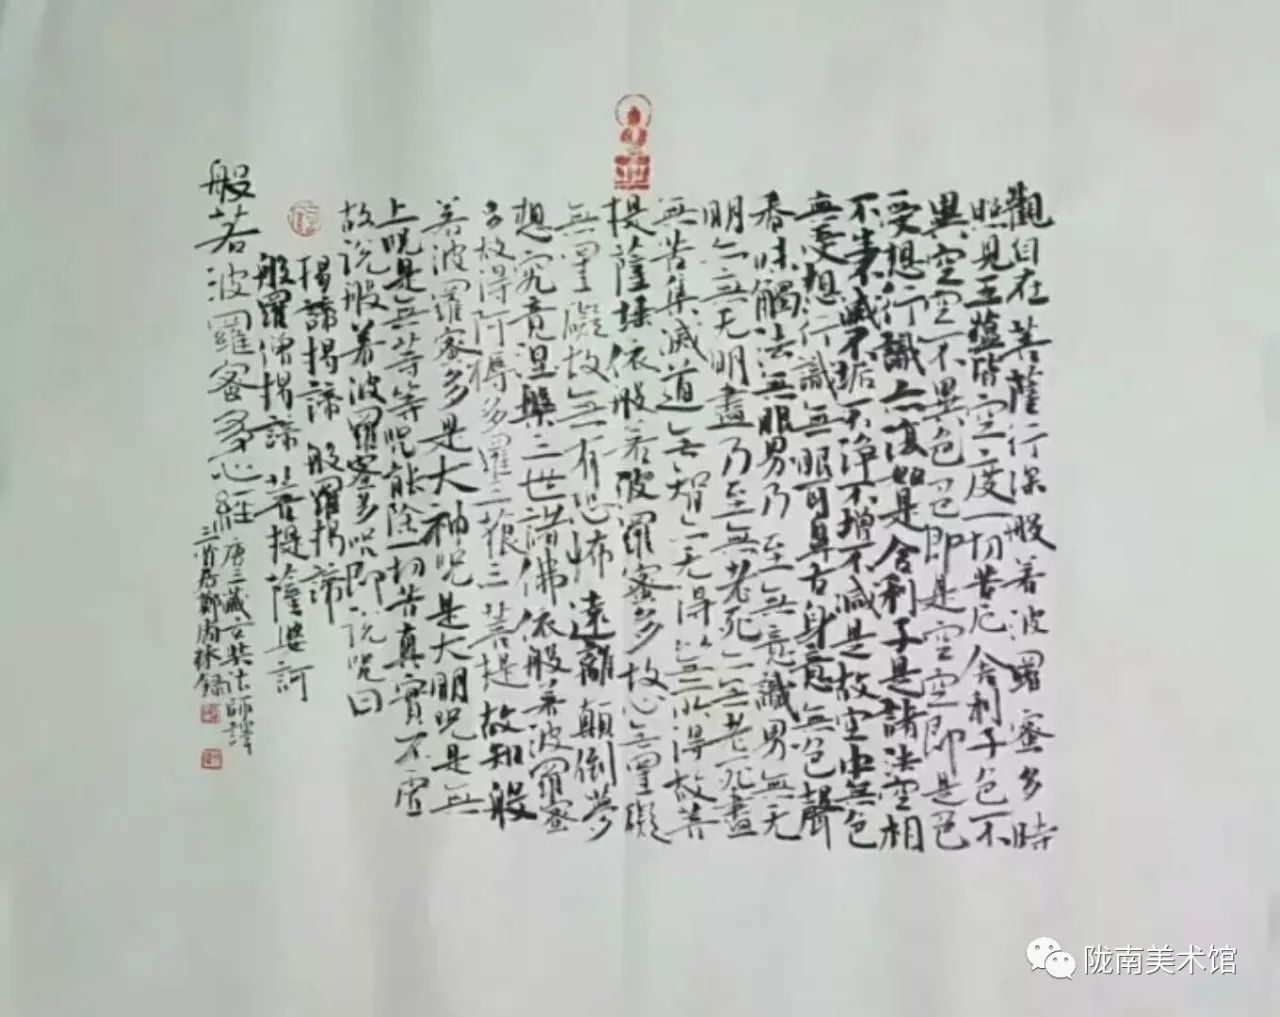 觀自在菩薩行深般若波羅蜜多時
照見五蘊皆空度一切苦厄舍利子色不
異空空不異色色即是空空即是色
受想行識亦復如是舍利子是諸法空相
不生不滅不垢不淨不增不減是故空中無色
無受想行識無眼耳鼻舌身意無色聲
香味觸法无眼界乃至無意識界無无
明亦无无明盡乃至無老死亦无老死盡
無苦集滅道无智亦无得以无所得故菩
提薩埵依般若波羅蜜多故心无罣礙
无罣礙故无有恐怖遠離顛倒夢
想究竟涅槃三世諸佛依般若波羅蜜
多故得阿耨多羅三藐三菩提故知般
若波羅蜜多是大神咒是大明咒是無
上咒是無等等咒能除一切苦真實不虛
故說般若波羅蜜多咒即說咒曰
揭諦揭諦般羅揭諦
般羅僧揭諦菩提薩婆訶
般若波羅蜜多心經
唐三藏玄奘法師譯
錄
陇南美术馆